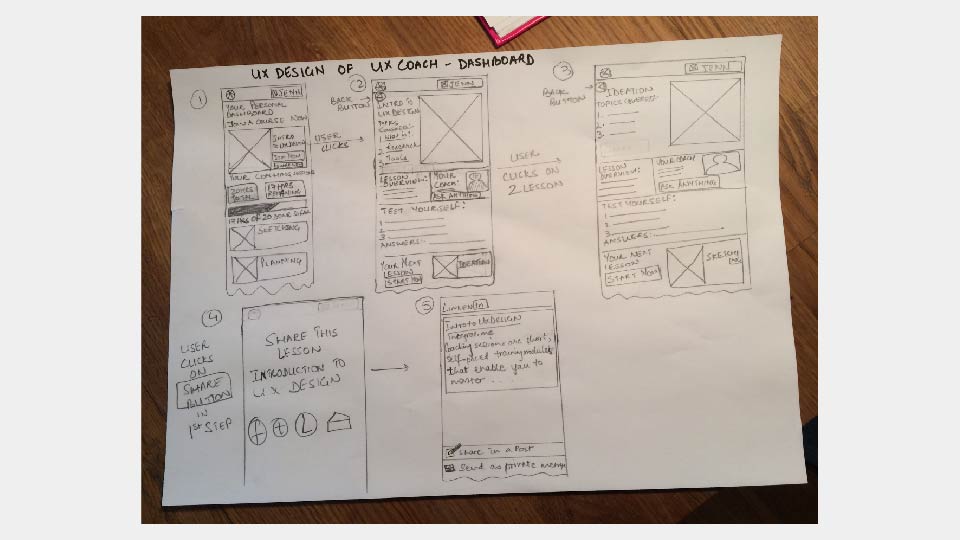 UX DESIGN OF UX COACH - DASHBOARD
1
JENN
YOUR PERSONAL
DASHBOARD
COURSE NOW
INTRO
YOUR COACHING
17 HRS
REMAINING
17 HRS OF 20
SKETCHING
PLANNING
USER
CLICKS
2
BACK
BUTTON
JENN
INTRO TO
UX DESIGN
TOPICS
COVERED:
1. WHAT IS?
2. Feedback
3. Tools
LESSON
OVERVIEW:
YOUR
COACH:
ASK ANYTHING
TEST YOURSELF:
1
2
3
ANSWERS:
YOUR NEXT
LESSON
START NOW
IDEATION
USER
CLICKS ON
2 LESSON
3
BACK
BUTTON
JENN
IDEATION
TOPICS COVERED:
1.
2.
3.
LESSON
OVERVIEW:
YOUR COACH
ASK ANYTHING
TEST YOURSELF:
1.
2.
3.
ANSWERS:
YOUR NEXT
LESSON
START NOW
SKETCHING
4
USER
CLICKS
ON
SHARE
BUTTON
IN
1ST STEP
SHARE THIS
LESSON
INTRODUCTION TO
UX DESIGN
f t L
5
LINKEDIN
Intro to UX DESIGN
sessions are short,
self-paced training modules
that enable you to
master . . . .
Share in a Post
Send as private message